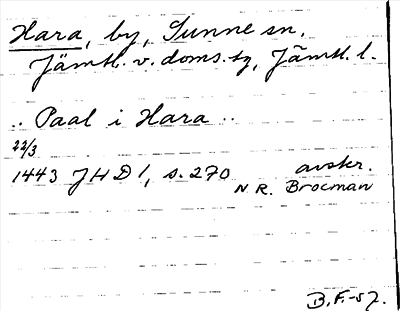 Hara, by, Sunne sn.
Jämtl. v. doms. tg, Jämtl. l.
.. Paal i Hara ..
22/3
1443 JHD 1, s. 270 avskr.
N. R. Brocman
B.F.-57.